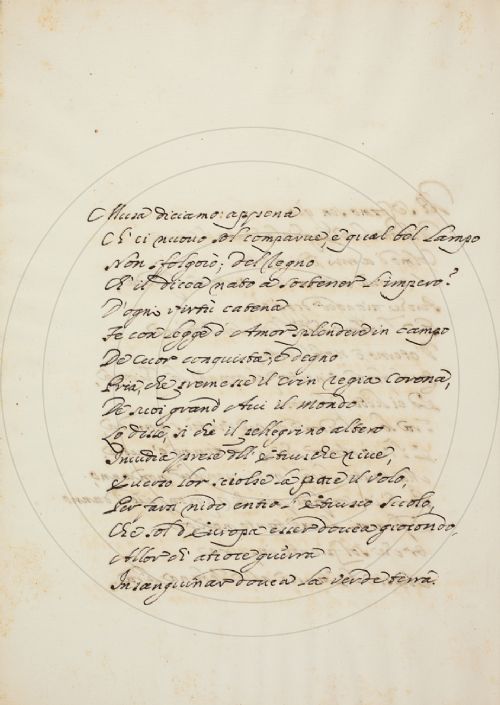 Musa diciamo: appena
Ch'ei nuovo sol comparve, e qual bel Lampo
Non sfolgorò; del Regno
Ch'il dicea nato a sostener l'impero?
D'ogni virtù catena
Fe con legge d'Amor splendeve in campo
De Cuor conquista; e degno
Pria, che premesse il crin regia Corona,
De suoi grand'Avi il mondo
Lo disse, sì che il pellegrino altero
Invidia prese dell' Etrusche rive,
E verso lor sciolse la pace il volo,
Per farsi nido entro l'Etrusco suolo,
Che sol d'Europa esser dovea giocondo,
Allor ch'atroce guerra
Insanguinar dovea la verde terra.